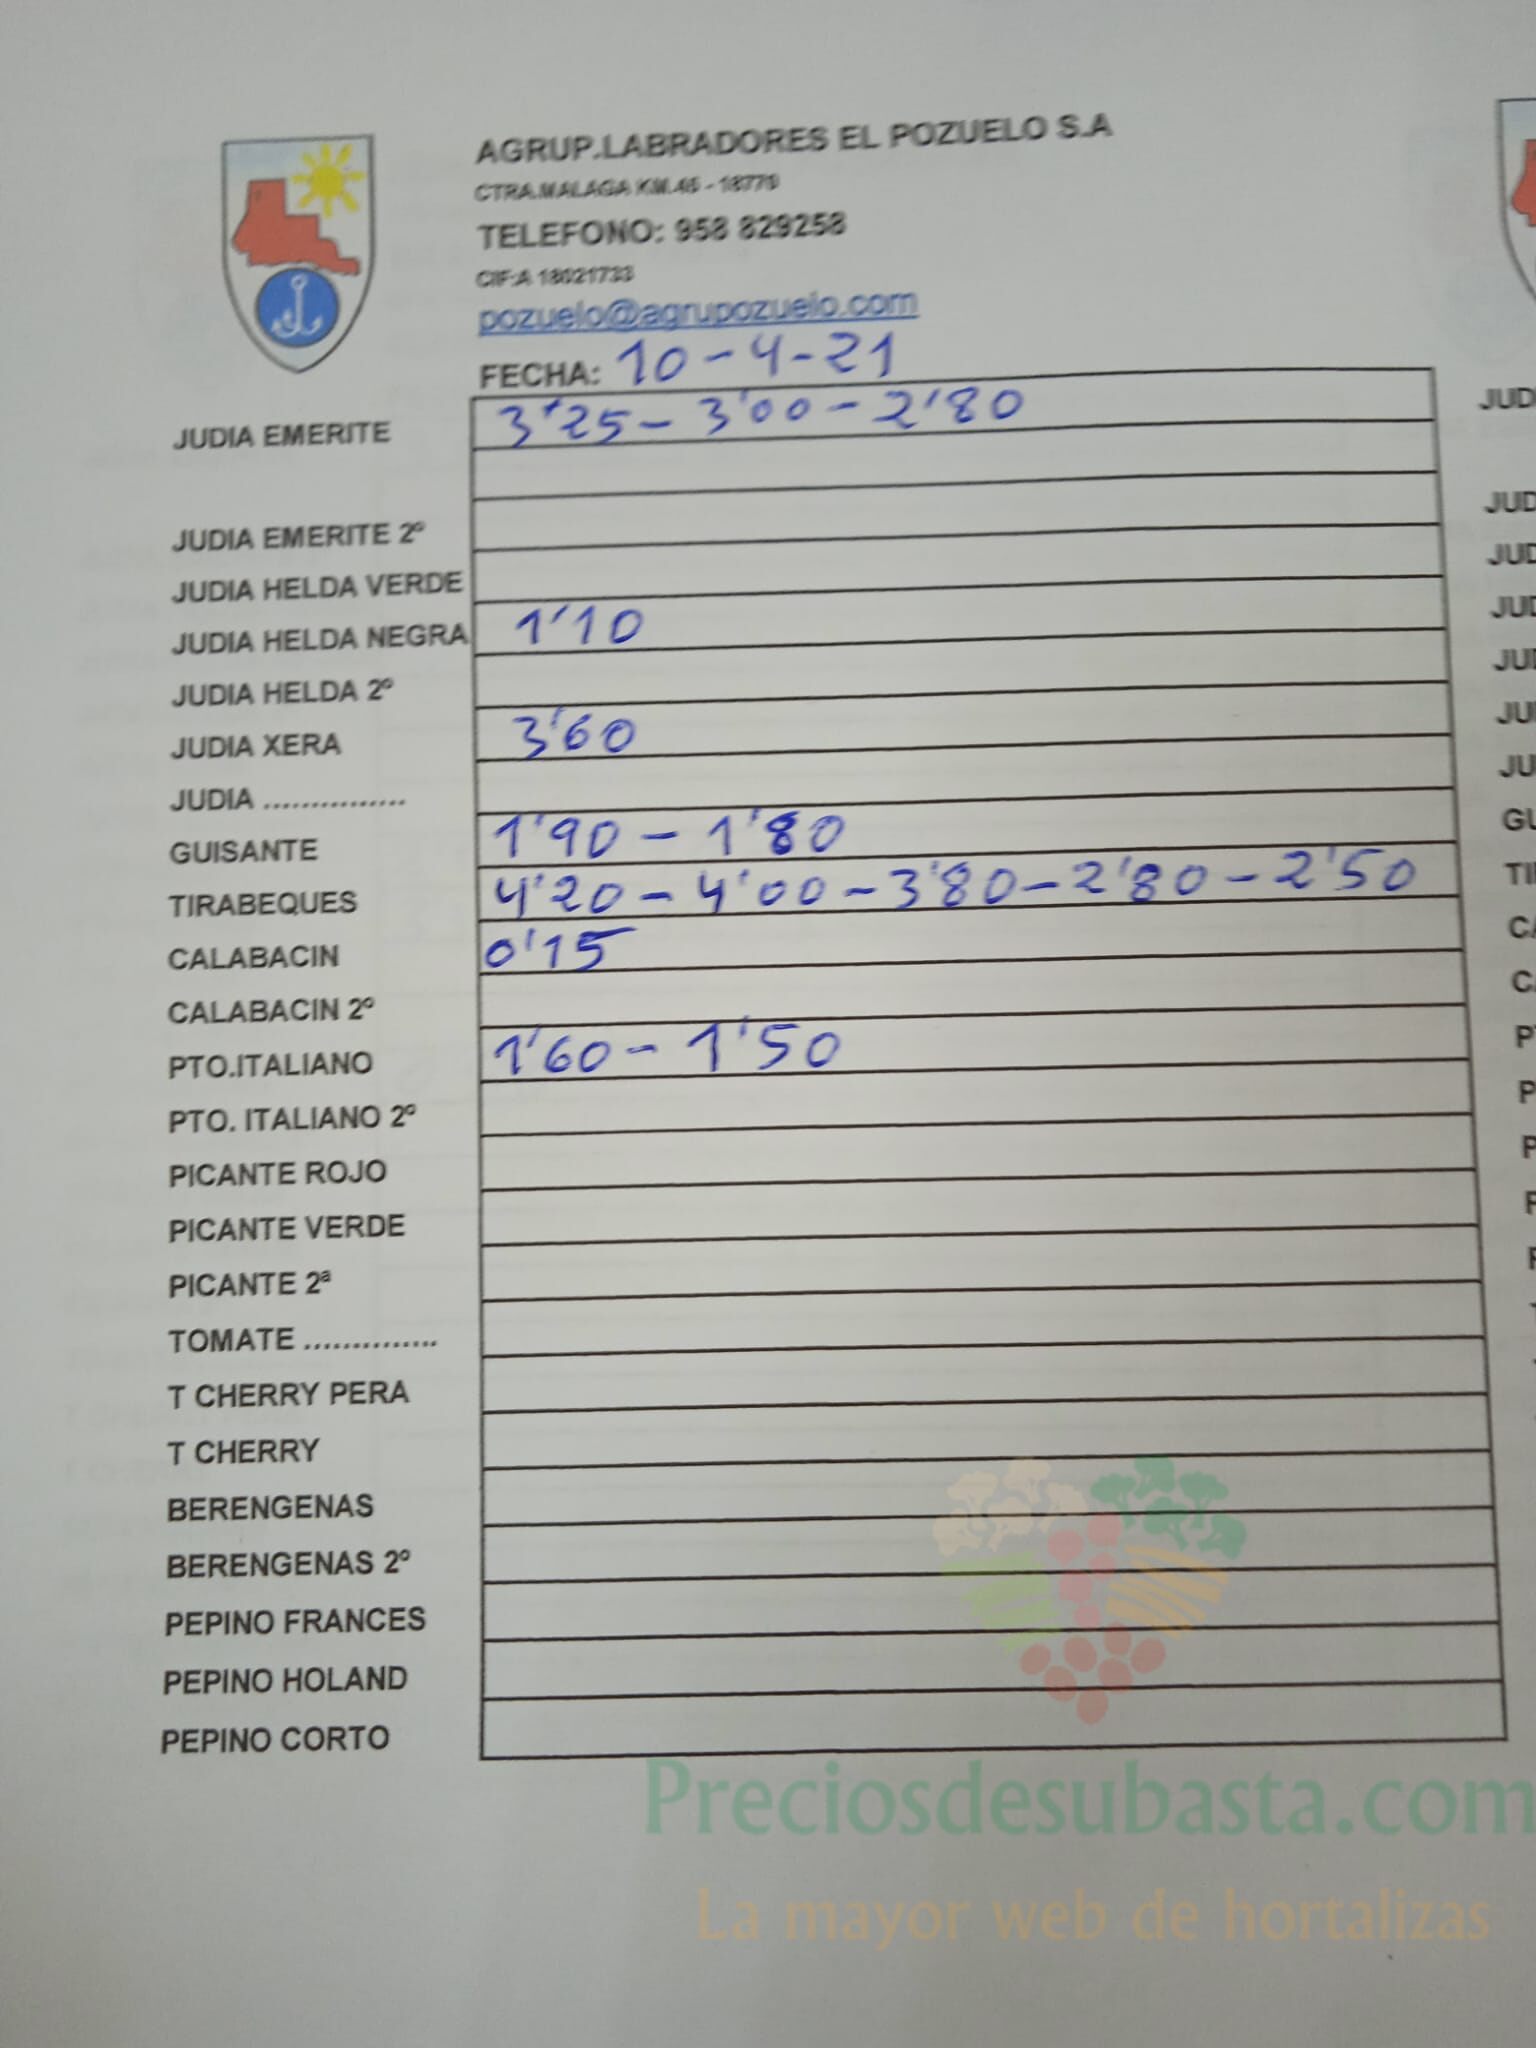 AGRUP.LABRADORES EL POZUELO S.A
CTRA.MALAGA KM.45 - 18770
TELEFONO: 958 829258
CIF:A 18021733
pozuelo@agrupozuelo.com
FECHA: 10-4-21
JUDIA EMERITE 3'25 - 3'00 - 2'80
JUDIA EMERITE 2º
JUDIA HELDA VERDE
JUDIA HELDA NEGRA 1'10
JUDIA HELDA 2º
JUDIA XERA 3'60
JUDIA ...............
GUISANTE 1'90 - 1'80
TIRABEQUES 4'20 - 4'00 - 3'80 - 2'80 - 2'50
CALABACIN 0'15
CALABACIN 2º
PTO.ITALIANO 1'60 - 1'50
PTO. ITALIANO 2º
PICANTE ROJO
PICANTE VERDE
PICANTE 2ª
TOMATE ..............
T CHERRY PERA
T CHERRY
BERENGENAS
BERENGENAS 2º
PEPINO FRANCES
PEPINO HOLAND
PEPINO CORTO
Preciosdesubasta.com
La mayor web de hortalizas